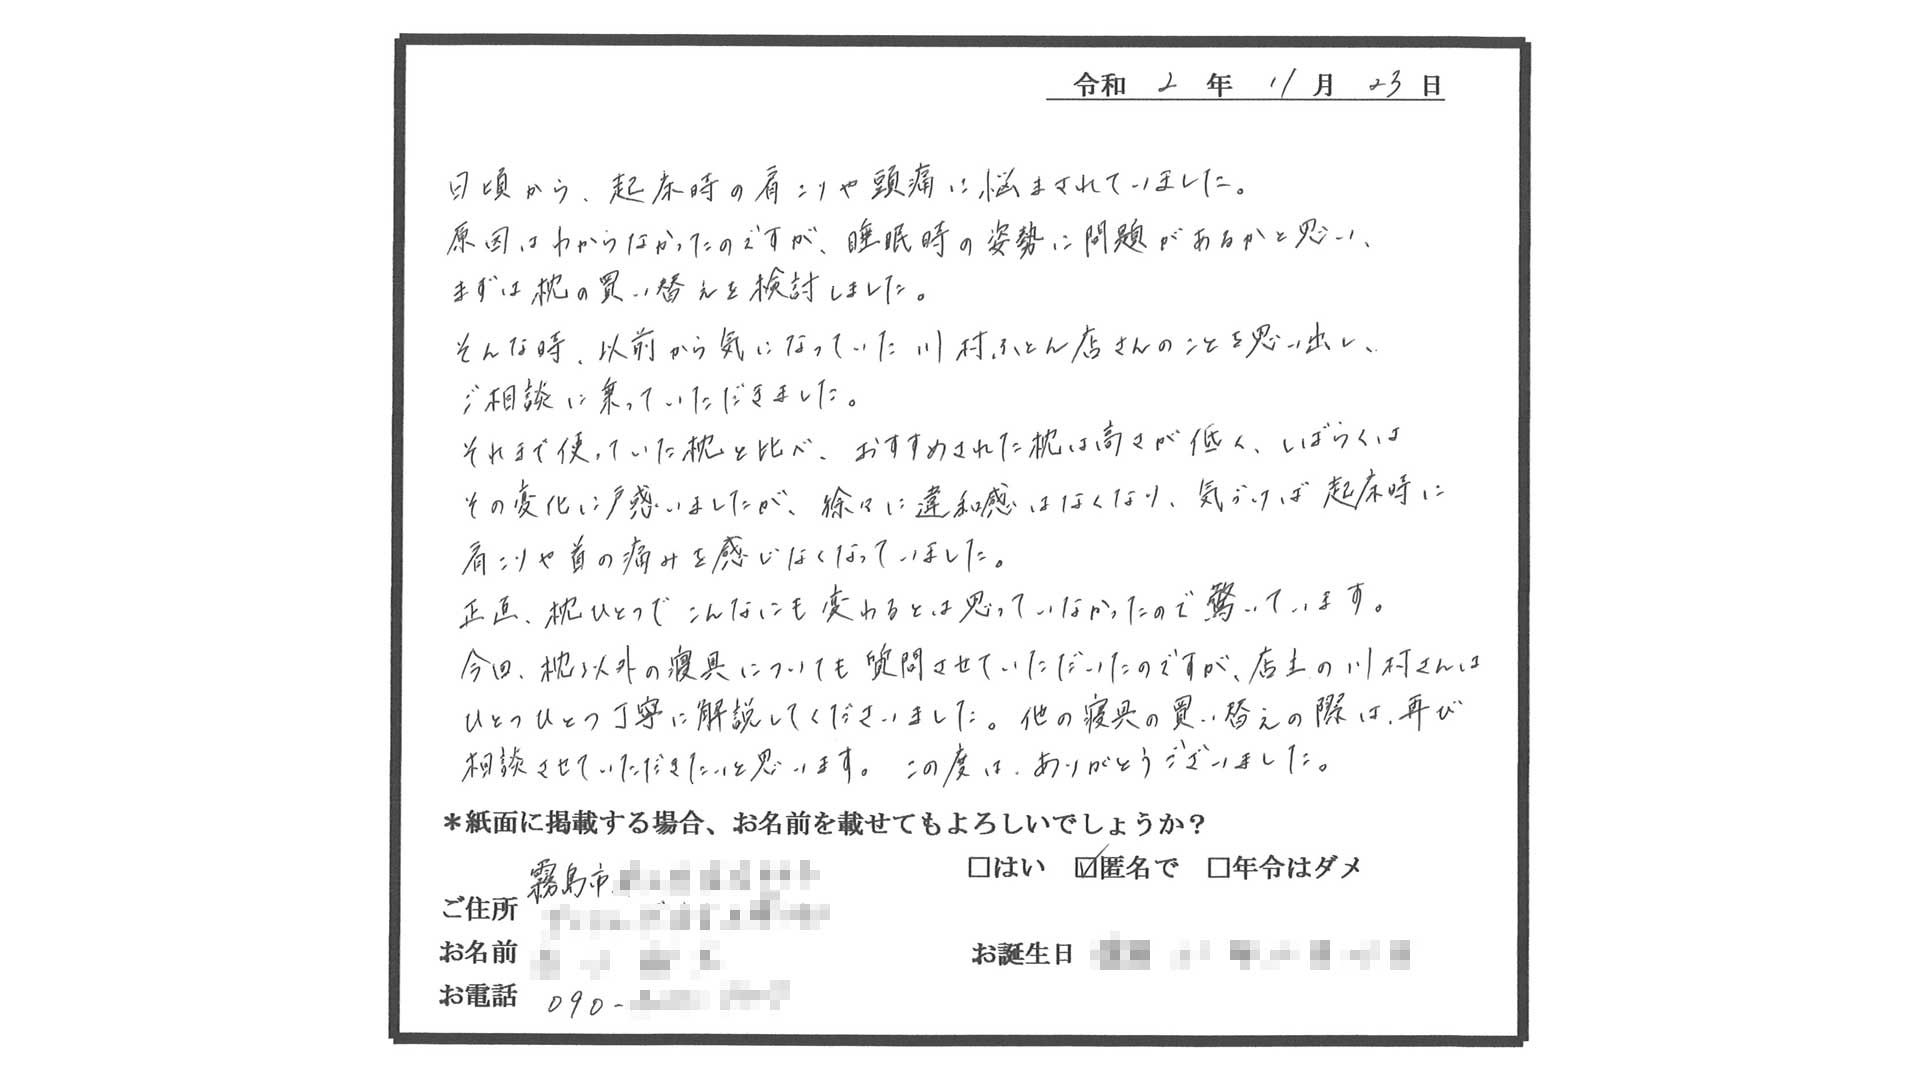 令和 2 年 11 月 23 日
日頃から、起床時の肩こりや頭痛に悩まされていました。
原因はわからなかったのですが、睡眠時の姿勢に問題があるかと思い、
まずは枕の買い替えを検討しました。
そんな時、以前から気になっていた川村ふとん店さんのことを思い出し、
ご相談に乗っていただきました。
それまで使っていた枕と比べ、おすすめされた枕は高さが低く、しばらくは
その変化に戸惑いましたが、徐々に違和感はなくなり、気づけば起床時に
肩こりや首の痛みを感じなくなっていました。
正直、枕ひとつでこんなにも変わるとは思っていなかったので驚いています。
今回、枕以外の寝具についても質問させていただいたのですが、店主の川村さんは
ひとつひとつ丁寧に解説してくださいました。他の寝具の買い替えの際は、再び
相談させていただきたいと思います。この度は、ありがとうございました。
＊紙面に掲載する場合、お名前を載せてもよろしいでしょうか？
□はい ☑匿名で □年令はダメ
ご住所 霧島市
お名前
お誕生日
お電話 090-